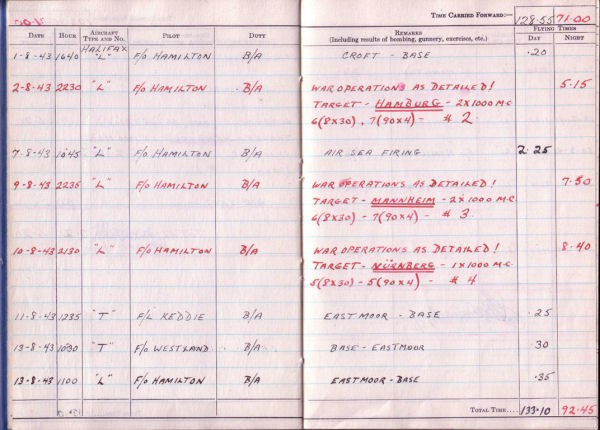 TIME CARRIED FORWARD:— 128.55 71.00
DATE HOUR AIRCRAFT TYPE AND NO. PILOT DUTY REMARKS (Including results of bombing, gunnery, exercises, etc.) FLYING TIMES DAY NIGHT
HALIFAX
1-8-43 1640 "L" F/O HAMILTON B/A CROFT - BASE .20
2-8-43 2230 "L" F/O HAMILTON B/A WAR OPERATIONS AS DETAILED! 5.15
TARGET - HAMBURG - 2X1000 M.C.
6(8X30), 7(90X4) - # 2
7-8-43 1045 "L" F/O HAMILTON B/A AIR SEA FIRING 2.25
9-8-43 2235 "L" F/O HAMILTON B/A WAR OPERATIONS AS DETAILED! 7.50
TARGET - MANNHEIM - 2X1000 M.C.
6(8X30) - 7(90X4) - # 3
10-8-43 2130 "L" F/O HAMILTON B/A WAR OPERATIONS AS DETAILED! 8.40
TARGET - NÜRNBERG - 1X1000 M.C.
5(8X30) - 5(90X4) - # 4
11-8-43 1235 "T" F/L KEDDIE B/A EASTMOOR - BASE .25
13-8-43 1030 "T" F/O WESTLAND B/A BASE - EASTMOOR .30
13-8-43 1100 "L" F/O HAMILTON B/A EASTMOOR - BASE .35
TOTAL TIME.... 133.10 92.45